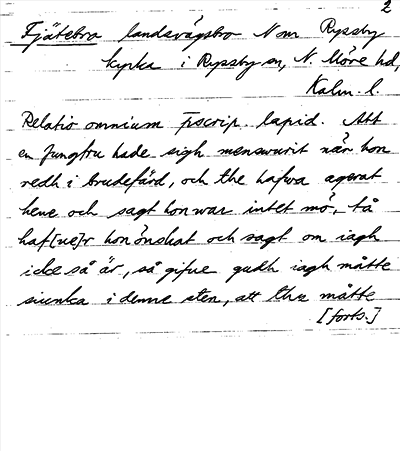 2
Fjätebro landsvägsbro N om Ryssby
kyrka i Ryssby sn, N. Möre hd,
Kalm. l.
Relatio omnium p̄scrip. lapid. Att
en Jungfru hade sigh menswurit når hon
redh i brudefärd, och the hafwa agerat
hene och sagt hon war intet mö, tå
haf[ue]r hon önskat och sagt om iagh
icke så är, så gifue gudh iagh måtte
siunka i denne sten, att the måtte
[forts.]